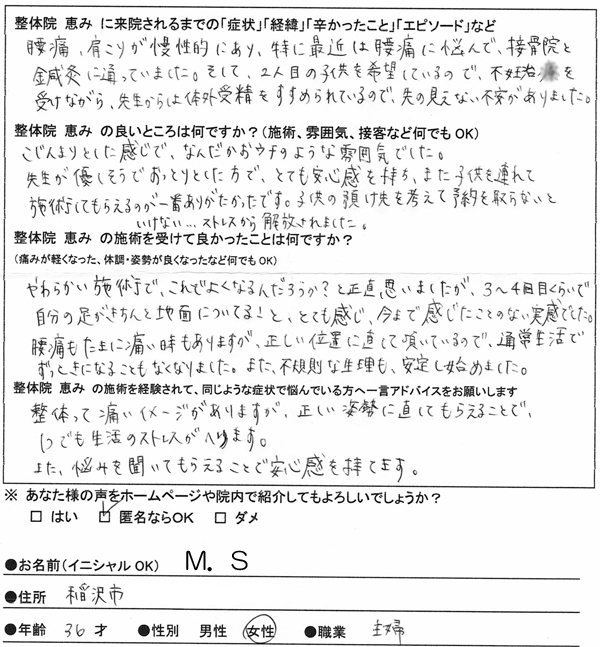 整体院 恵み に来院されるまでの「症状」「経緯」「辛かったこと」「エピソード」など
腰痛、肩こりが慢性的にあり、特に最近は腰痛に悩んで、接骨院と
金鍼灸に通っていました。そして、2人目の子供を希望しているので、不妊治療を
受けながら、先生からは体外受精をすすめられているので、先の見えない不安がありました。
整体院 恵み の良いところは何ですか？(施術、雰囲気、接客など何でもOK)
こじんまりとした感じで、なんだかおウチのような雰囲気でした。
先生が優しそうでおっとりとした方で、とても安心感を持ち、また子供を連れて
施術してもらえるのが一番ありがたかったです。子供の預け先を考えて予約を取らないと
いけない…ストレスから解放されました。
整体院 恵み の施術を受けて良かったことは何ですか？
(痛みが軽くなった、体調・姿勢が良くなったなど何でもOK)
やわらかい施術で、これでよくなるんだろうか？と正直思いましたが、3～4回目くらいで
自分の足がきちんと地面についてる！と、とても感じ、今まで感じたことのない実感でした。
腰痛もたまに痛い時もありますが、正しい位置に直して頂いているので、通常生活で
ずっときになることもなくなりました。また、不規則な生理も、安定し始めました。
整体院 恵み の施術を経験されて、同じような症状で悩んでいる方へ一言アドバイスをお願いします
整体って痛いイメージがありますが、正しい姿勢に直してもらえることで、
いつでも生活のストレスがへります。
また、悩みを聞いてもらえることで安心感を持てます。
※ あなた様の声をホームページや院内で紹介してもよろしいでしょうか？
□ はい ☑ 匿名ならOK □ ダメ
●お名前(イニシャルOK) M. S
●住所 稲沢市
●年齢 36 才 ●性別 男性 女性 ●職業 主婦